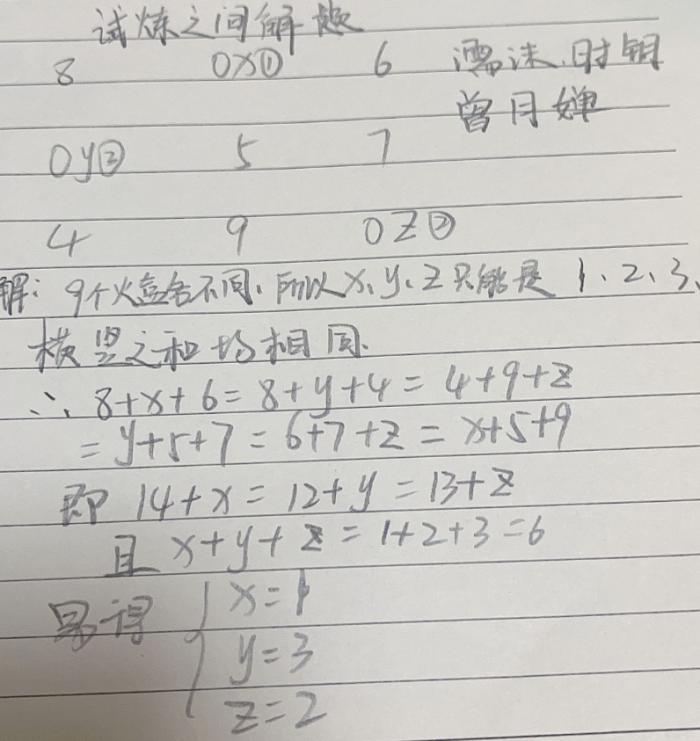 试炼之间解题
8 0X① 6 濡沫.时钥
曾月婵
0y② 5 7
4 9 0Z②
解: 9个火盒各不同.所以x、y、z只能是 1、2、3、
横竖之和均相同.
∴ 8+x+6=8+y+4=4+9+z
=y+5+7=6+7+z=x+5+9
即 14+x=12+y=13+z
且 x+y+z=1+2+3=6
易得 { x=1
y=3
z=2